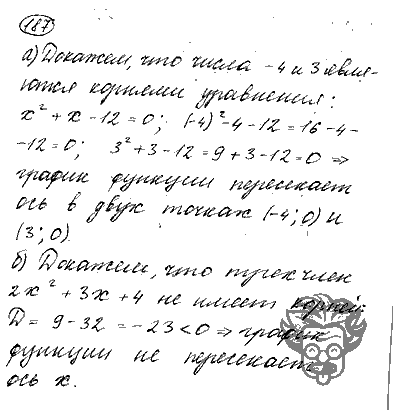 187
а) Докажем, что числа -4 и 3 явля-
ются корнями уравнения:
x² + x - 12 = 0; (-4)² - 4 - 12 = 16 - 4 -
- 12 = 0; 3² + 3 - 12 = 9 + 3 - 12 = 0 ⇒
график функции пересекает
ось в двух точках (-4; 0) и
(3; 0).
б) Докажем, что трехчлен
2x² + 3x + 4 не имеет корней:
D = 9 - 32 = -23 < 0 ⇒ график
функции не пересекает
ось x.